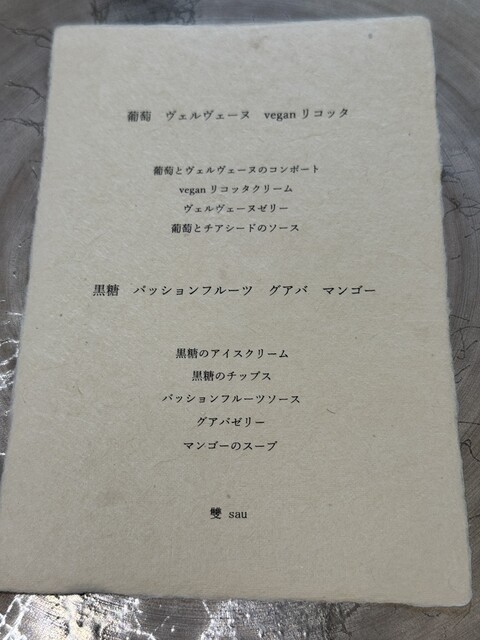 葡萄　ヴェルヴェーヌ　vegan リコッタ
葡萄とヴェルヴェーヌのコンポート
vegan リコッタクリーム
ヴェルヴェーヌゼリー
葡萄とチアシードのソース
黒糖　パッションフルーツ　グアバ　マンゴー
黒糖のアイスクリーム
黒糖のチップス
パッションフルーツソース
グアバゼリー
マンゴーのスープ
雙 sau